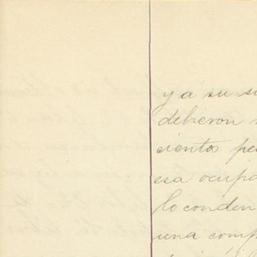 y a su su
debieron
cientos pe
esa ocupa
lo conden
una comp